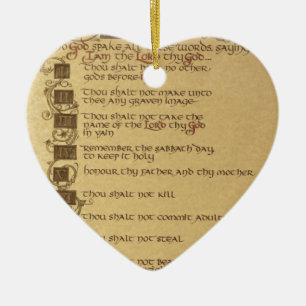 God spake all words, saying
I am the Lord thy God...
Thou shalt have no other
gods before
Thou shalt not make unto
thee any graven image
Thou shalt not take the
name of the Lord thy God
in vain
IV Remember the sabbath day,
to keep it holy
V honour thy father and thy mother
Thou shalt not kill
Thou shalt not commit adult
shalt not steal
shalt not bea